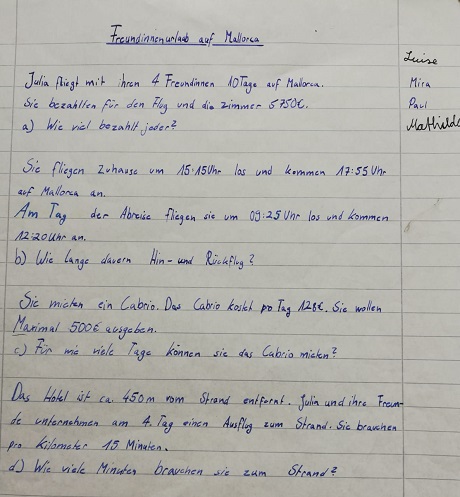 Freundinnenurlaub auf Mallorca
Luise
Mira
Paul
Mathilde
Julia fliegt mit ihren 4 Freundinnen 10 Tage auf Mallorca.
Sie bezahlten für den Flug und die zimmer 5750€.
a) Wie viel bezahlt jeder?
Sie fliegen Zuhause um 15:15 Uhr los und kommen 17:55 Uhr
auf Mallorca an.
Am Tag der Abreise fliegen sie um 09:25 Uhr los und kommen
12:20 Uhr an.
b) Wie lange dauern Hin- und Rückflug?
Sie mieten ein Cabrio. Das Cabrio kostet pro Tag 128€. Sie wollen
Maximal 500€ ausgeben.
c) Für wie viele Tage können sie das Cabrio mieten?
Das Hotel ist ca. 450m vom Strand entfernt. Julia und ihre Freun-
de unternehmen am 4. Tag einen Ausflug zum Strand. Sie brauchen
pro Kilometer 15 Minuten.
d) Wie viele Minuten brauchen sie zum Strand?